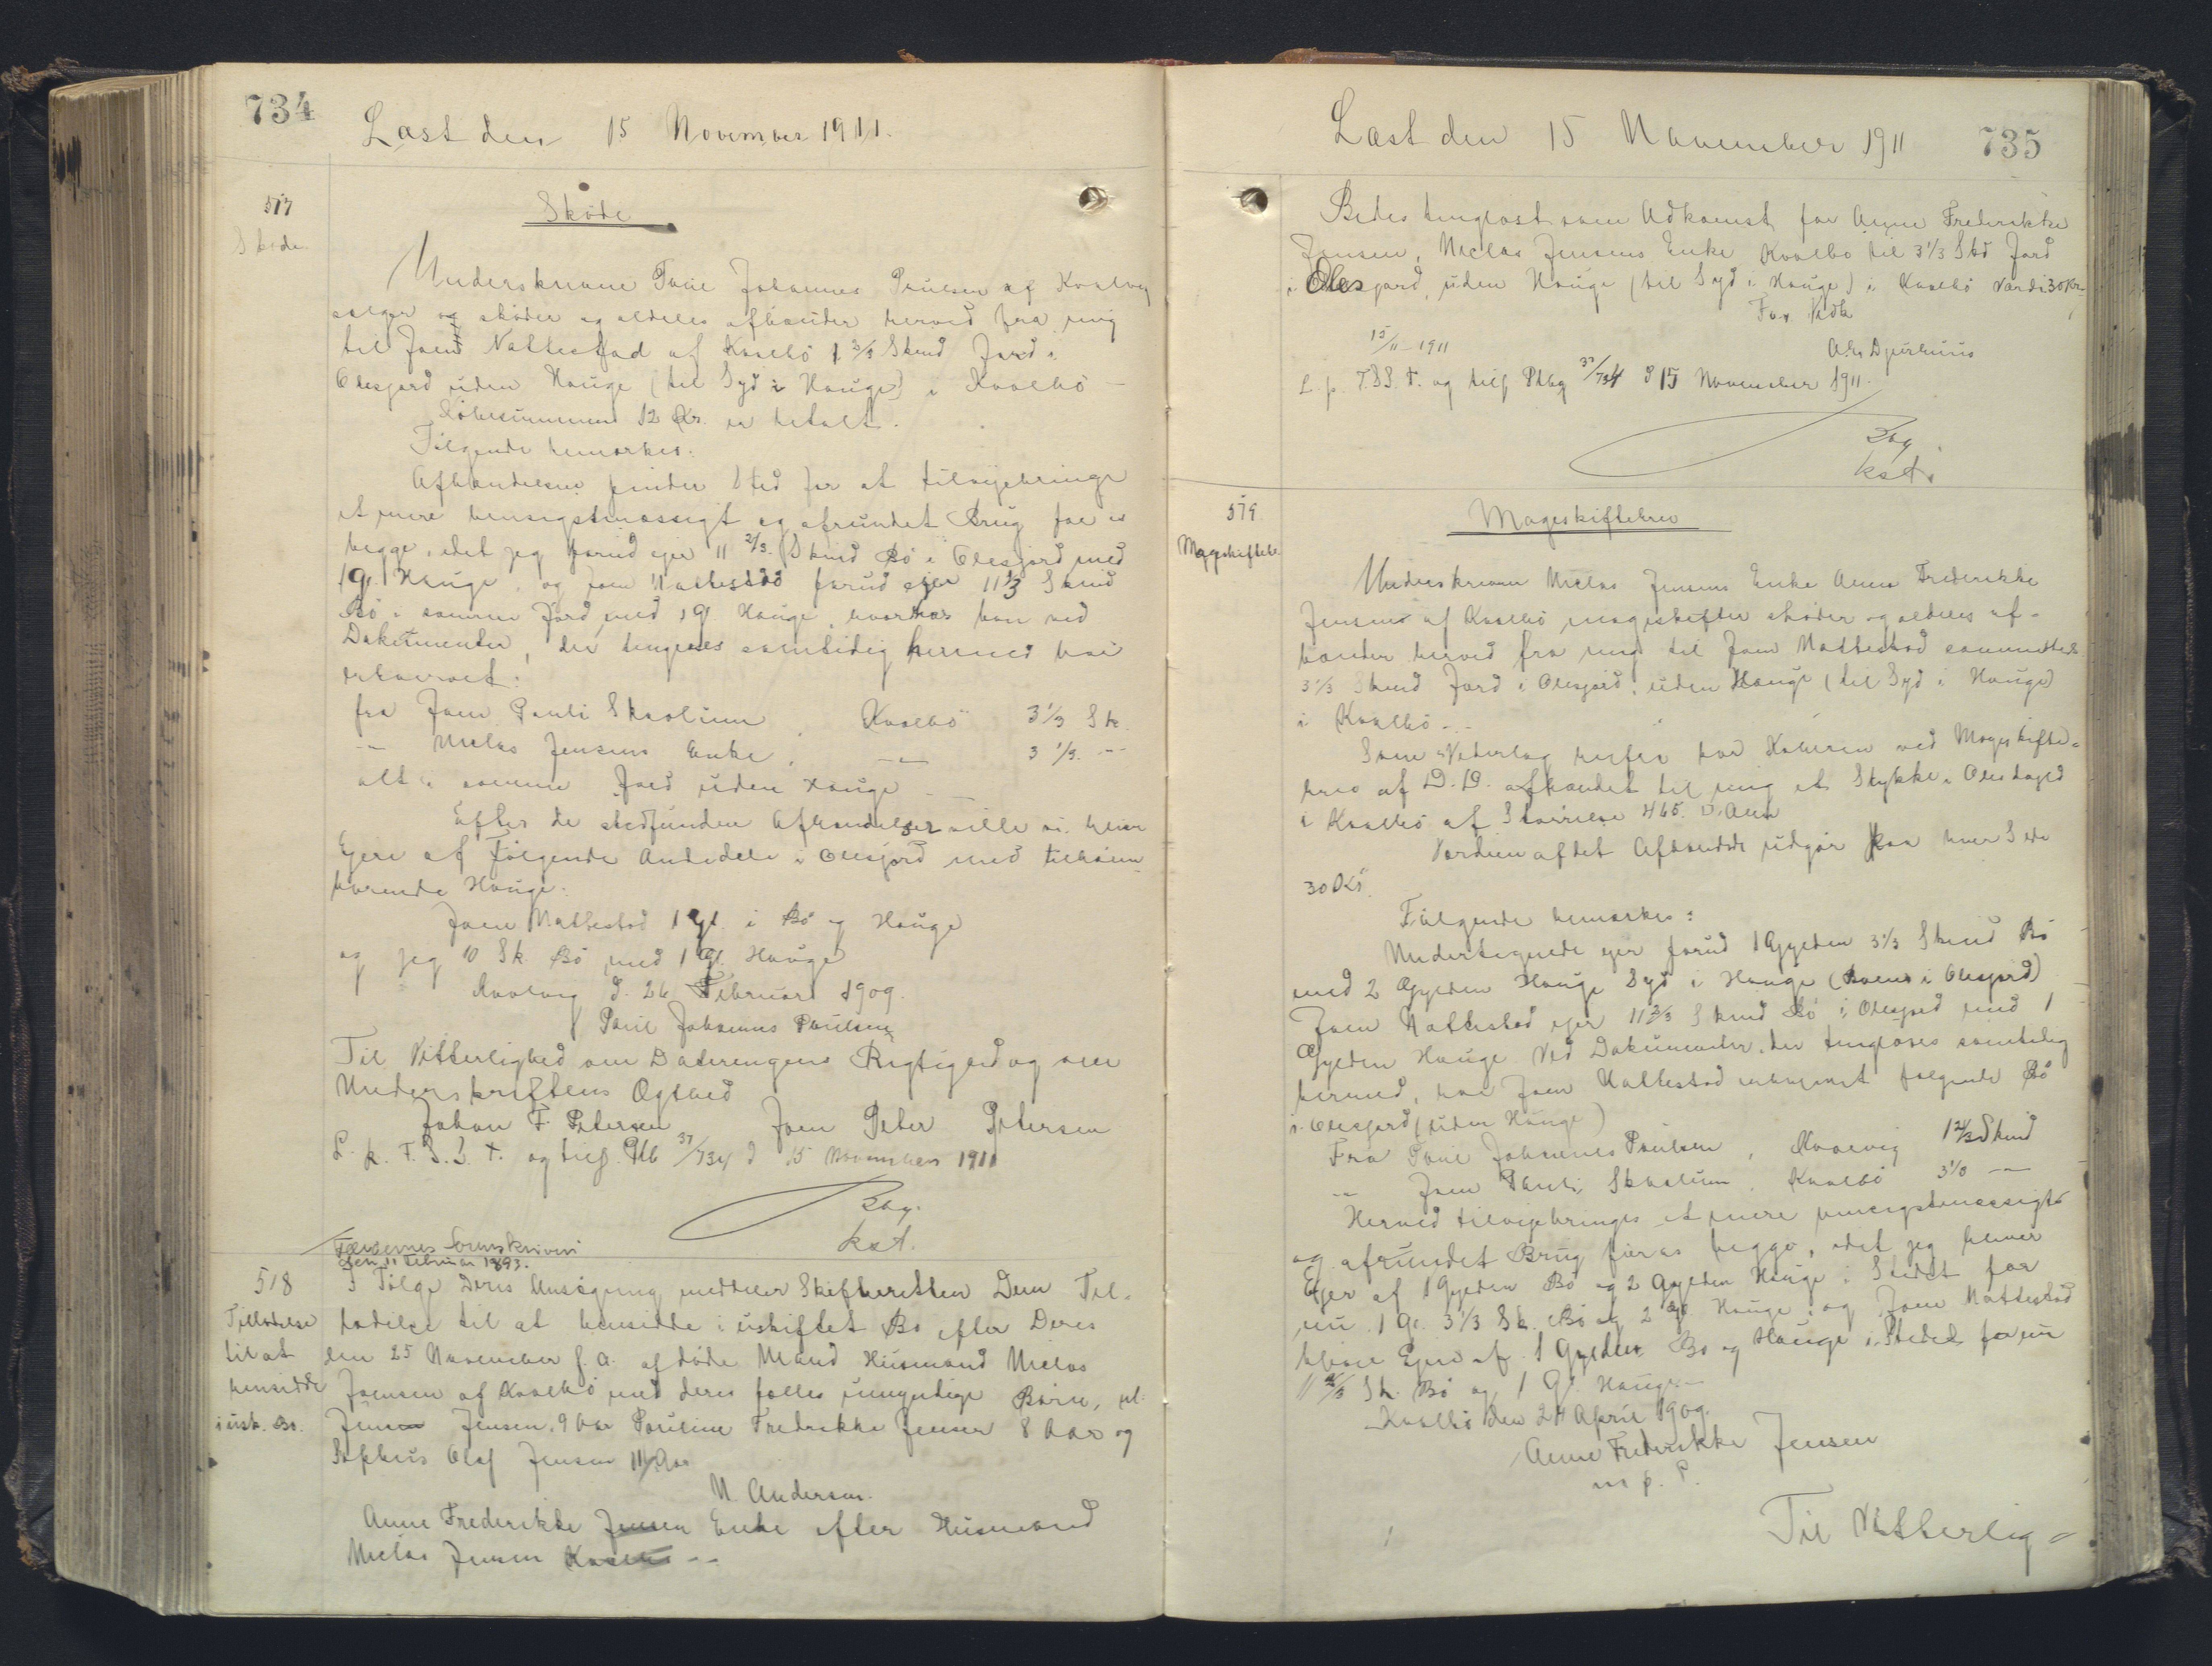 734
Læst den 15 November 1911.
517
Skøde
Skøde
Underskrevne Poul Johannes Poulsen af Kvalvig
sælger og skøder og aldeles afhænder herved fra mig
til Joen Nattestad af Kvalbø 1 2/3 Skind Jord i
Olesjord uden Hauge (til Syd i Hauge) i Kvalbø
Købesummen 12 Kr. er betalt.
Følgende bemærkes:
Afhændelsen finder Sted for at tilvejebringe
et mere hensigtsmæssigt og afrundet Brug for os
begge, idet jeg forud ejer 11 2/3 Skind Bø i Olesjord med
1 Gl. Hauge, og Joen Nattestad forud ejer 11 2/3 Skind
Bø i samme Jord med 1 Gl. Hauge, hvorhos han ved
Dokumenter, der tinglæses samtidig hermed har
erhvervet:
fra Joen Pauli Skaalum Kvalbø 3 1/3 Sk.
-- Niclas Jensens Enke, -- 3 1/3 --
alt i samme Jord uden Hauge
Efter de stedfundne Afhændelser ville vi blive
Ejere af følgende Andedele i Olesjord med tilhøren
hørende Hauge:
Joen Nattestad 1 Gl. i Bø og Hauge
og jeg 10 Sk. Bø med 1 Gl. Hauge
Kvalvig d. 26 Februar 1909.
Poul Johannes Poulsen
Til Vitterlighed om Dateringens Rigtighed og om
Underskriftens Ægthed
Johan F. Petersen Joen Peter Petersen
L. p. F. S. S. T. og tilf. Ptb 37/734 d 15 November 1911
Bag.
kst.
Færøernes Sorenskriveri
den 11 Februar 1893.
518
Tilladelse
til at
hensidde
i usk. Bo.
I Følge Deres Ansøgning meddeler Skifteretten Dem Til-
ladelse til at hensidde i uskiftet Bo efter Deres
den 25 November f. A. afdøde Mand Husmand Niclas
Joensen af Kvalbø med deres fælles umyndige Børn, nl.
Jens Jensen, 9 Aar Pouline Fredrikke Jensen 8 Aar og
Sophus Olaf Jensen 1 1/2 Aar
N. Andersen.
Anne Frederikke Jensen Enke efter Husmand
Niclas Jensen Kvalbø --
Læst den 15 November 1911
735
Bedes tinglæst som Adkomst for Anne Frederikke
Jensen, Niclas Jensens Enke Kvalbø til 3 1/3 Skd Jord
i Olesjord, uden Hauge (til Syd i Hauge) i Kvalbø Værdi 30 Kr
15/11 1911
L. p. F. S. S. T. og tilf Ptbg 37/734 d 15 November 1911.
Bag
kst.
579
Mageskifteb.
Mageskiftebrev
Underskrevne Niclas Jensens Enke Anne Frederikke
Jensen af Kvalbø mageskifter skøder og aldeles af-
hænder herved fra mig til Joen Nattestad sammesteds
3 1/3 Skind Jord i Olesjord, uden Hauge (til Syd i Hauge)
i Kvalbø --
Som Vederlag herfor har Køberen ved Mageskifte-
brev af D. D. afhændet til mig et Stykke i
i Kvalbø af Størrelse 465 □ Alen
Værdien af det Afhændede udgør paa hver Side
30 Kr.
Følgende bemærkes:
Undertegnede ejer forud 1 Gylden 3 1/3 Skind Bø
med 2 Gylden Hauge Syd i Hauge i Olesjord)
Joen Nattestad ejer 11 2/3 Skind Bø i Olesjord med 1
Gylden Hauge Ved Dokumenter, der tinglæses samtidig
hermed, har Joen Nattestad erhvervet følgende Bø
i Olesjord (uden Hauge)
Fra Poul Johannes Poulsen, Kvalvig 1 2/3 Skind
-- Joen Pauli Skaalum, Kvalbø 3 1/3 --
Herved tilvejebringes et mere hensigtsmæssigt
og afrundet Brug for os begge, idet jeg bliver
Ejer af 1 Gylden Bø og 2 Gylden Hauge i Stedet for
nu 1 Gl. 3 1/3 Sk. Bø og 2 Gl Hauge, og Joen Nattestad
bliver Ejer af 1 Gylden Bø og Hauge i Stedet for nu
11 2/3 Sk. Bø og 1 Gl. Hauge
Kvalbø den 24 April 1909.
Anne Frederikke Jensen
m. f. P.
Til Vitterlig-